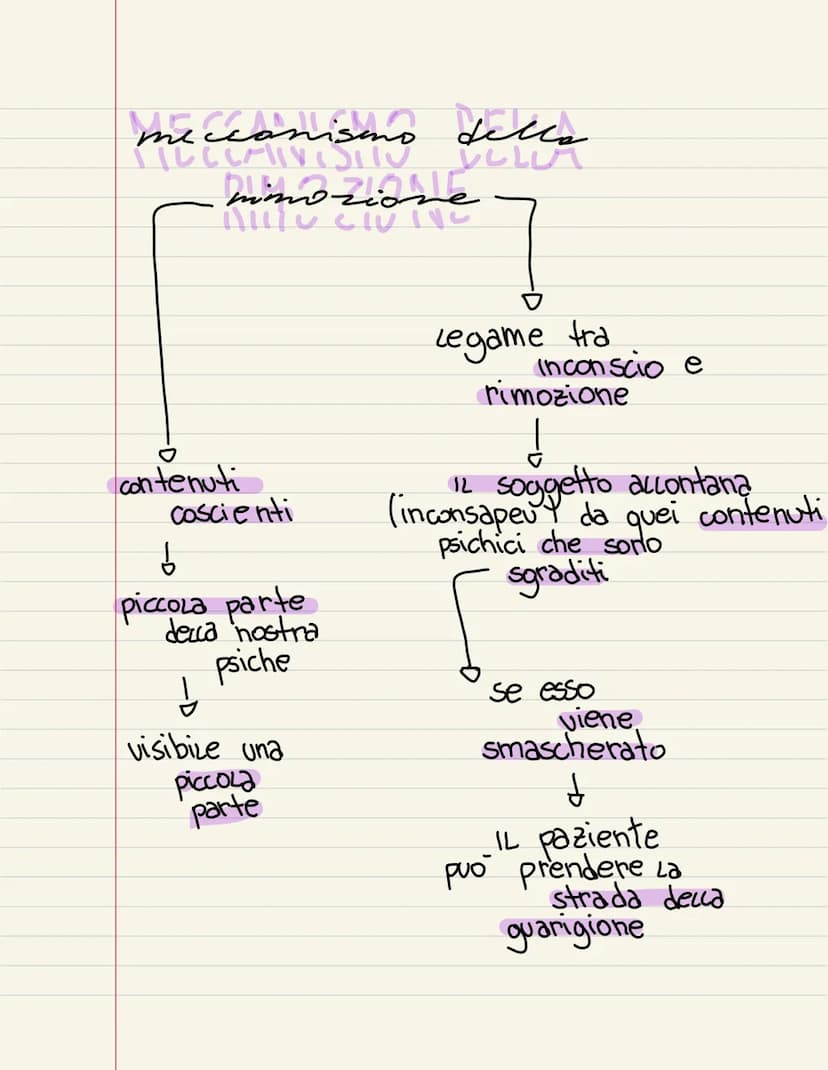 meccanismo della
rimozione
contenuti
coscienti
piccola parte
della nostra
psiche
visibile una
piccola
parte
Legame tra
inconscio e
rimozione
IL soggetto allontana
(inconsapev da quei contenuti
psichici che sono
sgraditi
se esso
viene
smascherato
IL paziente
può prendere la
strada della
guarigione